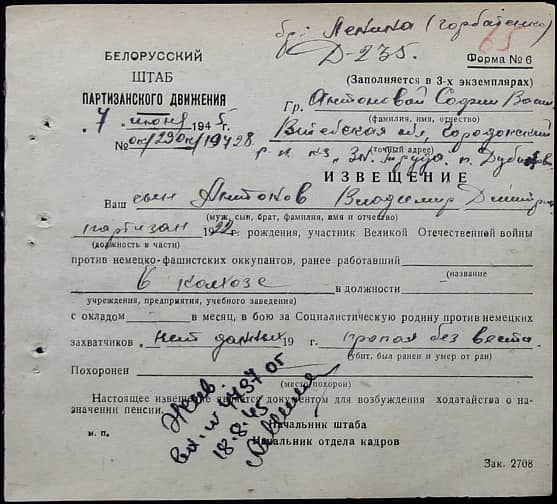 бр. Ленина (Горбатенко)
65
Д-235.
БЕЛОРУССКИЙ
ШТАБ
ПАРТИЗАНСКОГО ДВИЖЕНИЯ
7 июня 1945г.
№ok/290k/19428
Форма № 6
(Заполняется в 3-х экземплярах)
Гр. Антоновой Софии
(фамилия, имя, отчество)
Витебская обл, Городокский
(точный адрес)
р-н. к-з "Зн. Труда"
ИЗВЕЩЕНИЕ
Ваш сын Антонов Владимир Дмитр
(муж, сын, брат, фамилия, имя и отчество)
партизан 1922г. рождения, участник Великой Отечественной войны
(должность в части)
против немецко-фашистских оккупантов, ранее работавший
(название
в колхозе в должности
учреждения, предприятия, учебного заведения)
с окладом в месяц, в бою за Социалистическую родину против немецких
захватчиков нет данных 19 г. пропал без вести.
(убит, был ранен и умер от ран)
Похоронен
(место похорон)
Настоящее извещение является документом для возбуждения ходатайства о на-
значении пенсии.
Начальник штаба
м. п.
Начальник отдела кадров
Жив
вх. № 4197 от
18.8.45
Зак. 2708